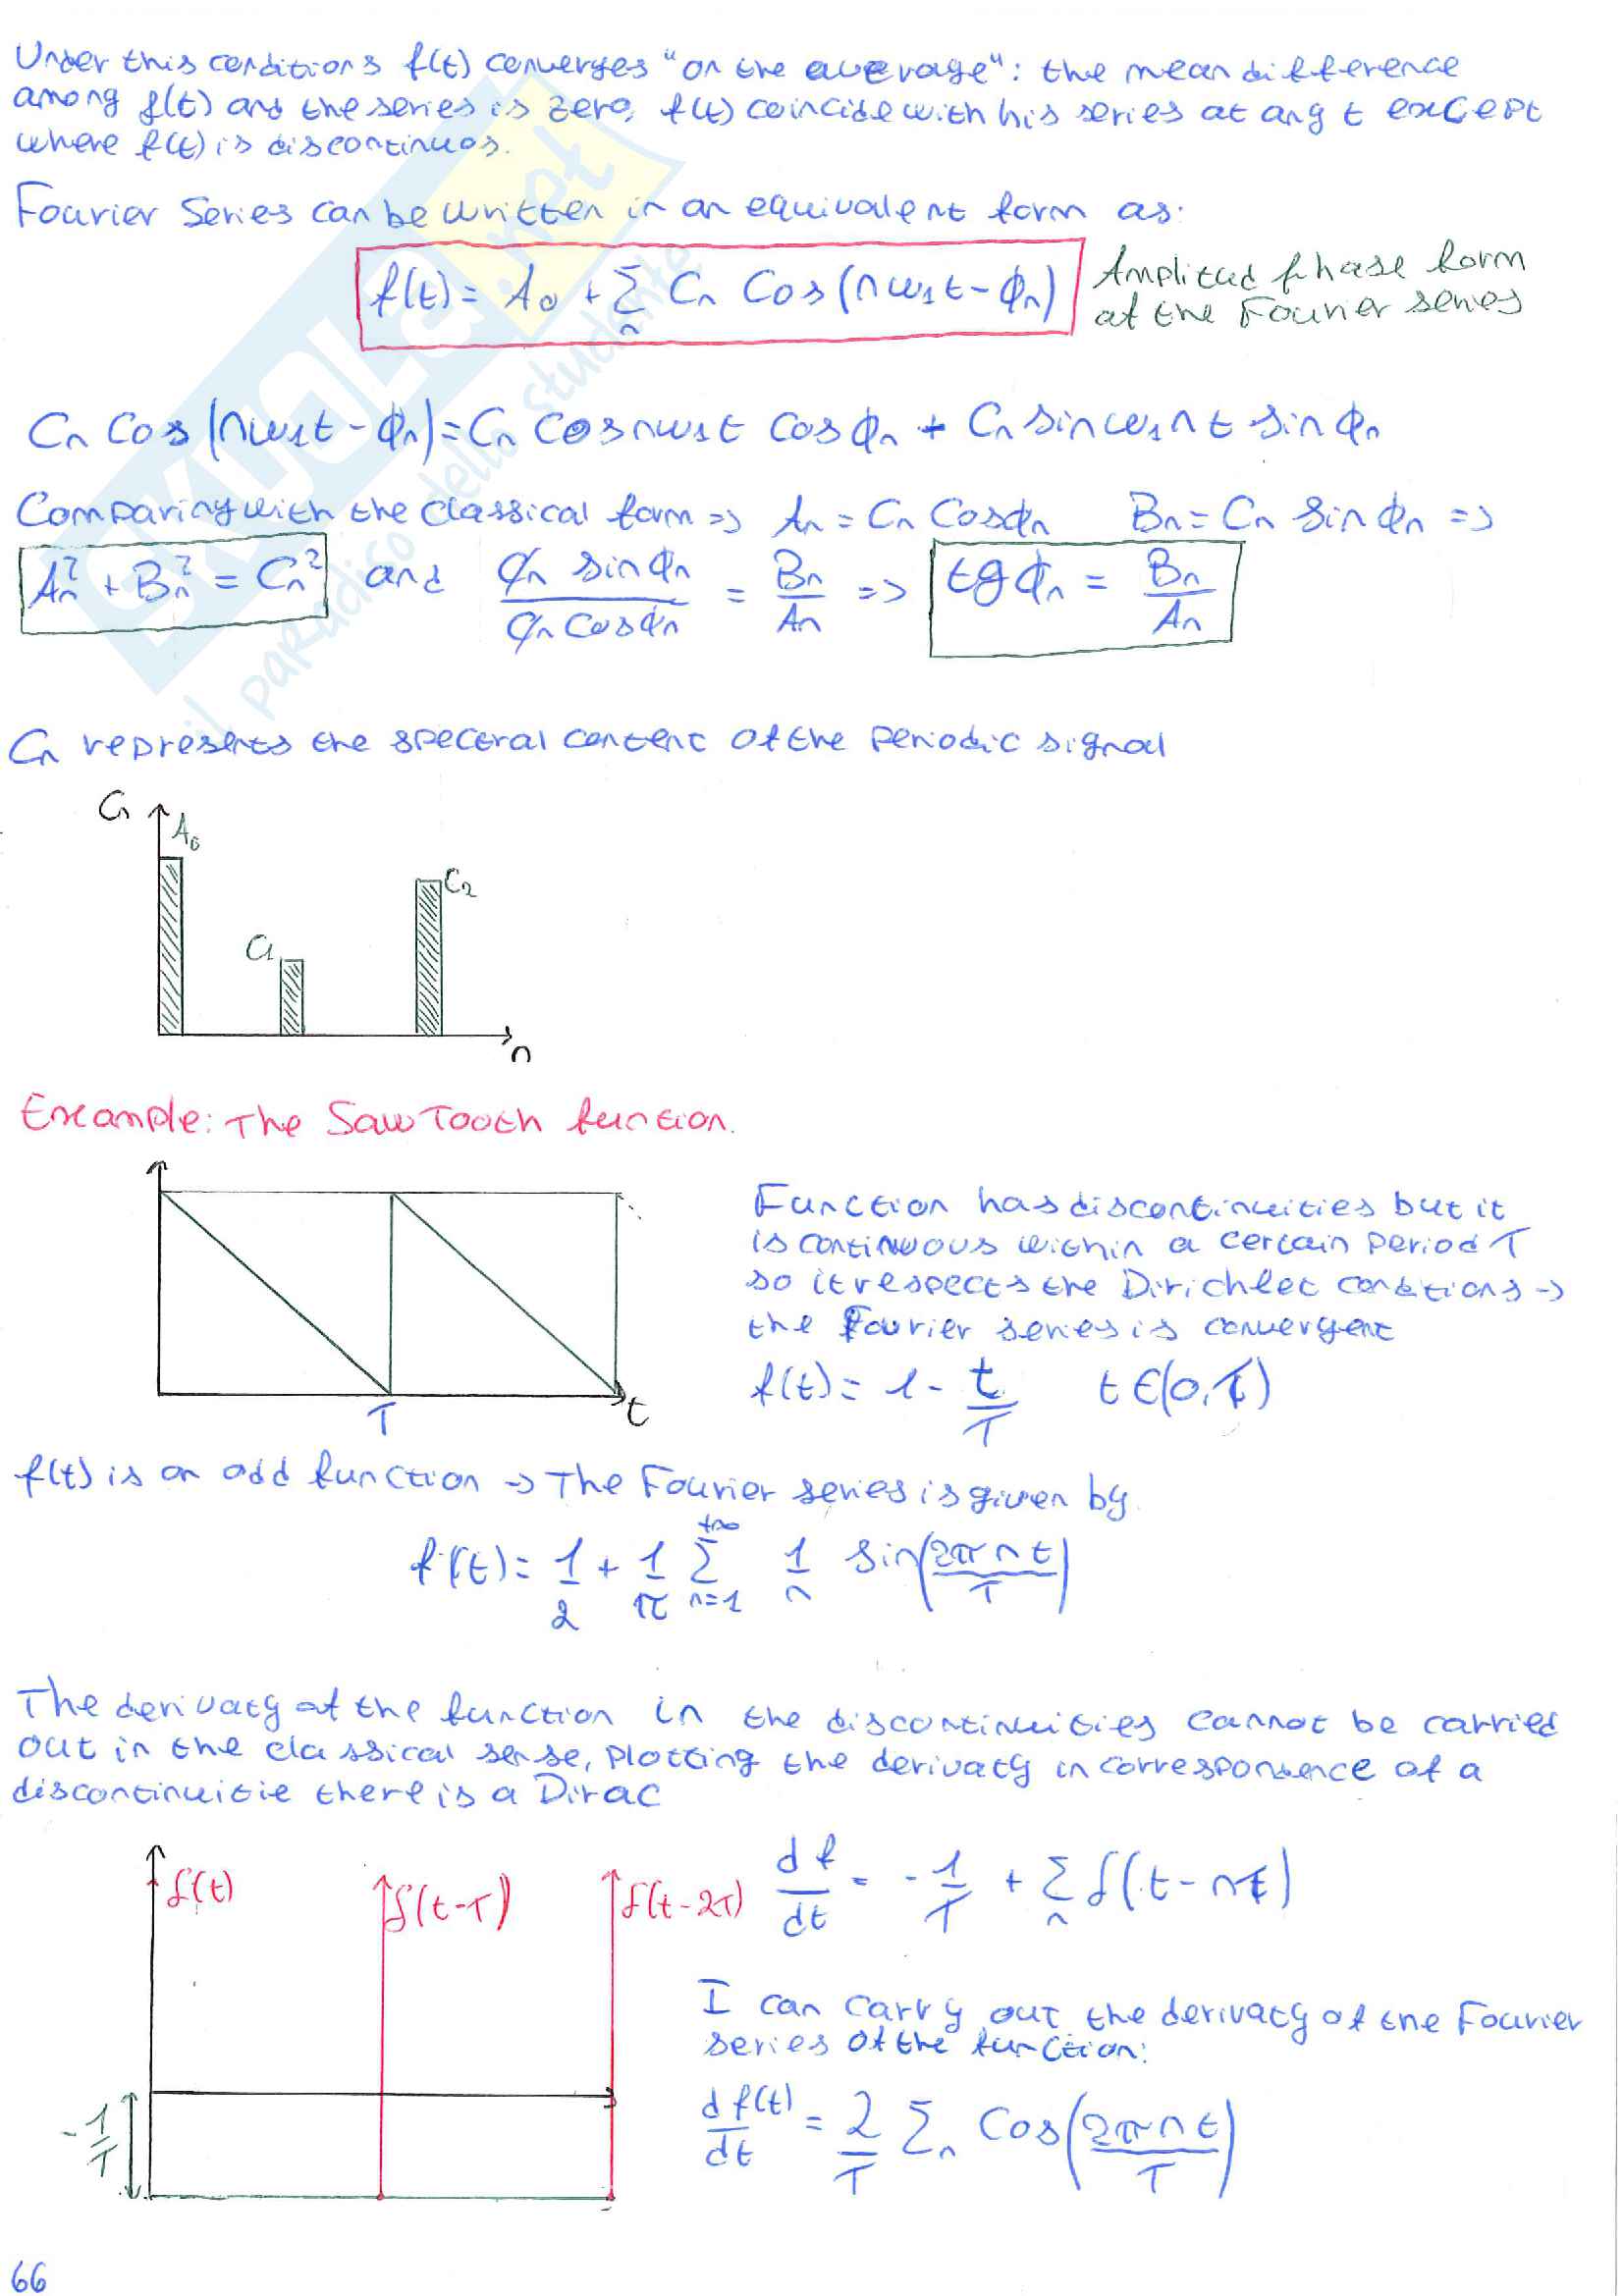 Under this conditions f(t) converges "on the average": the mean difference
among f(t) and the series is zero, f(t) coincide with his series at any t except
where f(t) is discontinuos.
Fourier Series can be written in an equivalent form as:
f(t) = A0 + Σn Cn Cos(nω1t - ϕn)
Amplitud phase form
of the Fourier series
Cn Cos(nω1t - ϕn) = Cn Cos nω1t cos ϕn + Cn sin ω1nt sin ϕn
Comparing with the classical form => An = Cn Cosϕn Bn = Cn sin ϕn =>
An² + Bn² = Cn² and Cn sin ϕn / Cn cos ϕn = Bn / An => tg ϕn = Bn / An
Cn represents the spectral content of the periodic signal
Cn
A0
C1
C2
n
Example: The SawTooth function.
Function has discontinuities but it
is continuous within a certain period T
so it respects the Dirichlet conditions ->
the Fourier series is convergent
f(t) = 1 - t/T t ∈ (0, T)
T
t
f(t) is an odd function -> The Fourier series is given by
f(t) = 1/2 + 1/π Σ n=1 +∞ 1/n sin(2πnt/T)
The derivaty of the function in the discontinuities cannot be carried
out in the classical sense, plotting the derivaty in correspondence of a
discontinuitie there is a Dirac
δ(t)
δ(t-T)
δ(t-2T)
df/dt = -1/T + Σn δ(t - nT)
I can carry out the derivaty of the Fourier
series of the function:
df(t)/dt = 2/T Σn Cos(2πnt/T)
-1/T
66
SKUOLA.net
il paradiso dello studente